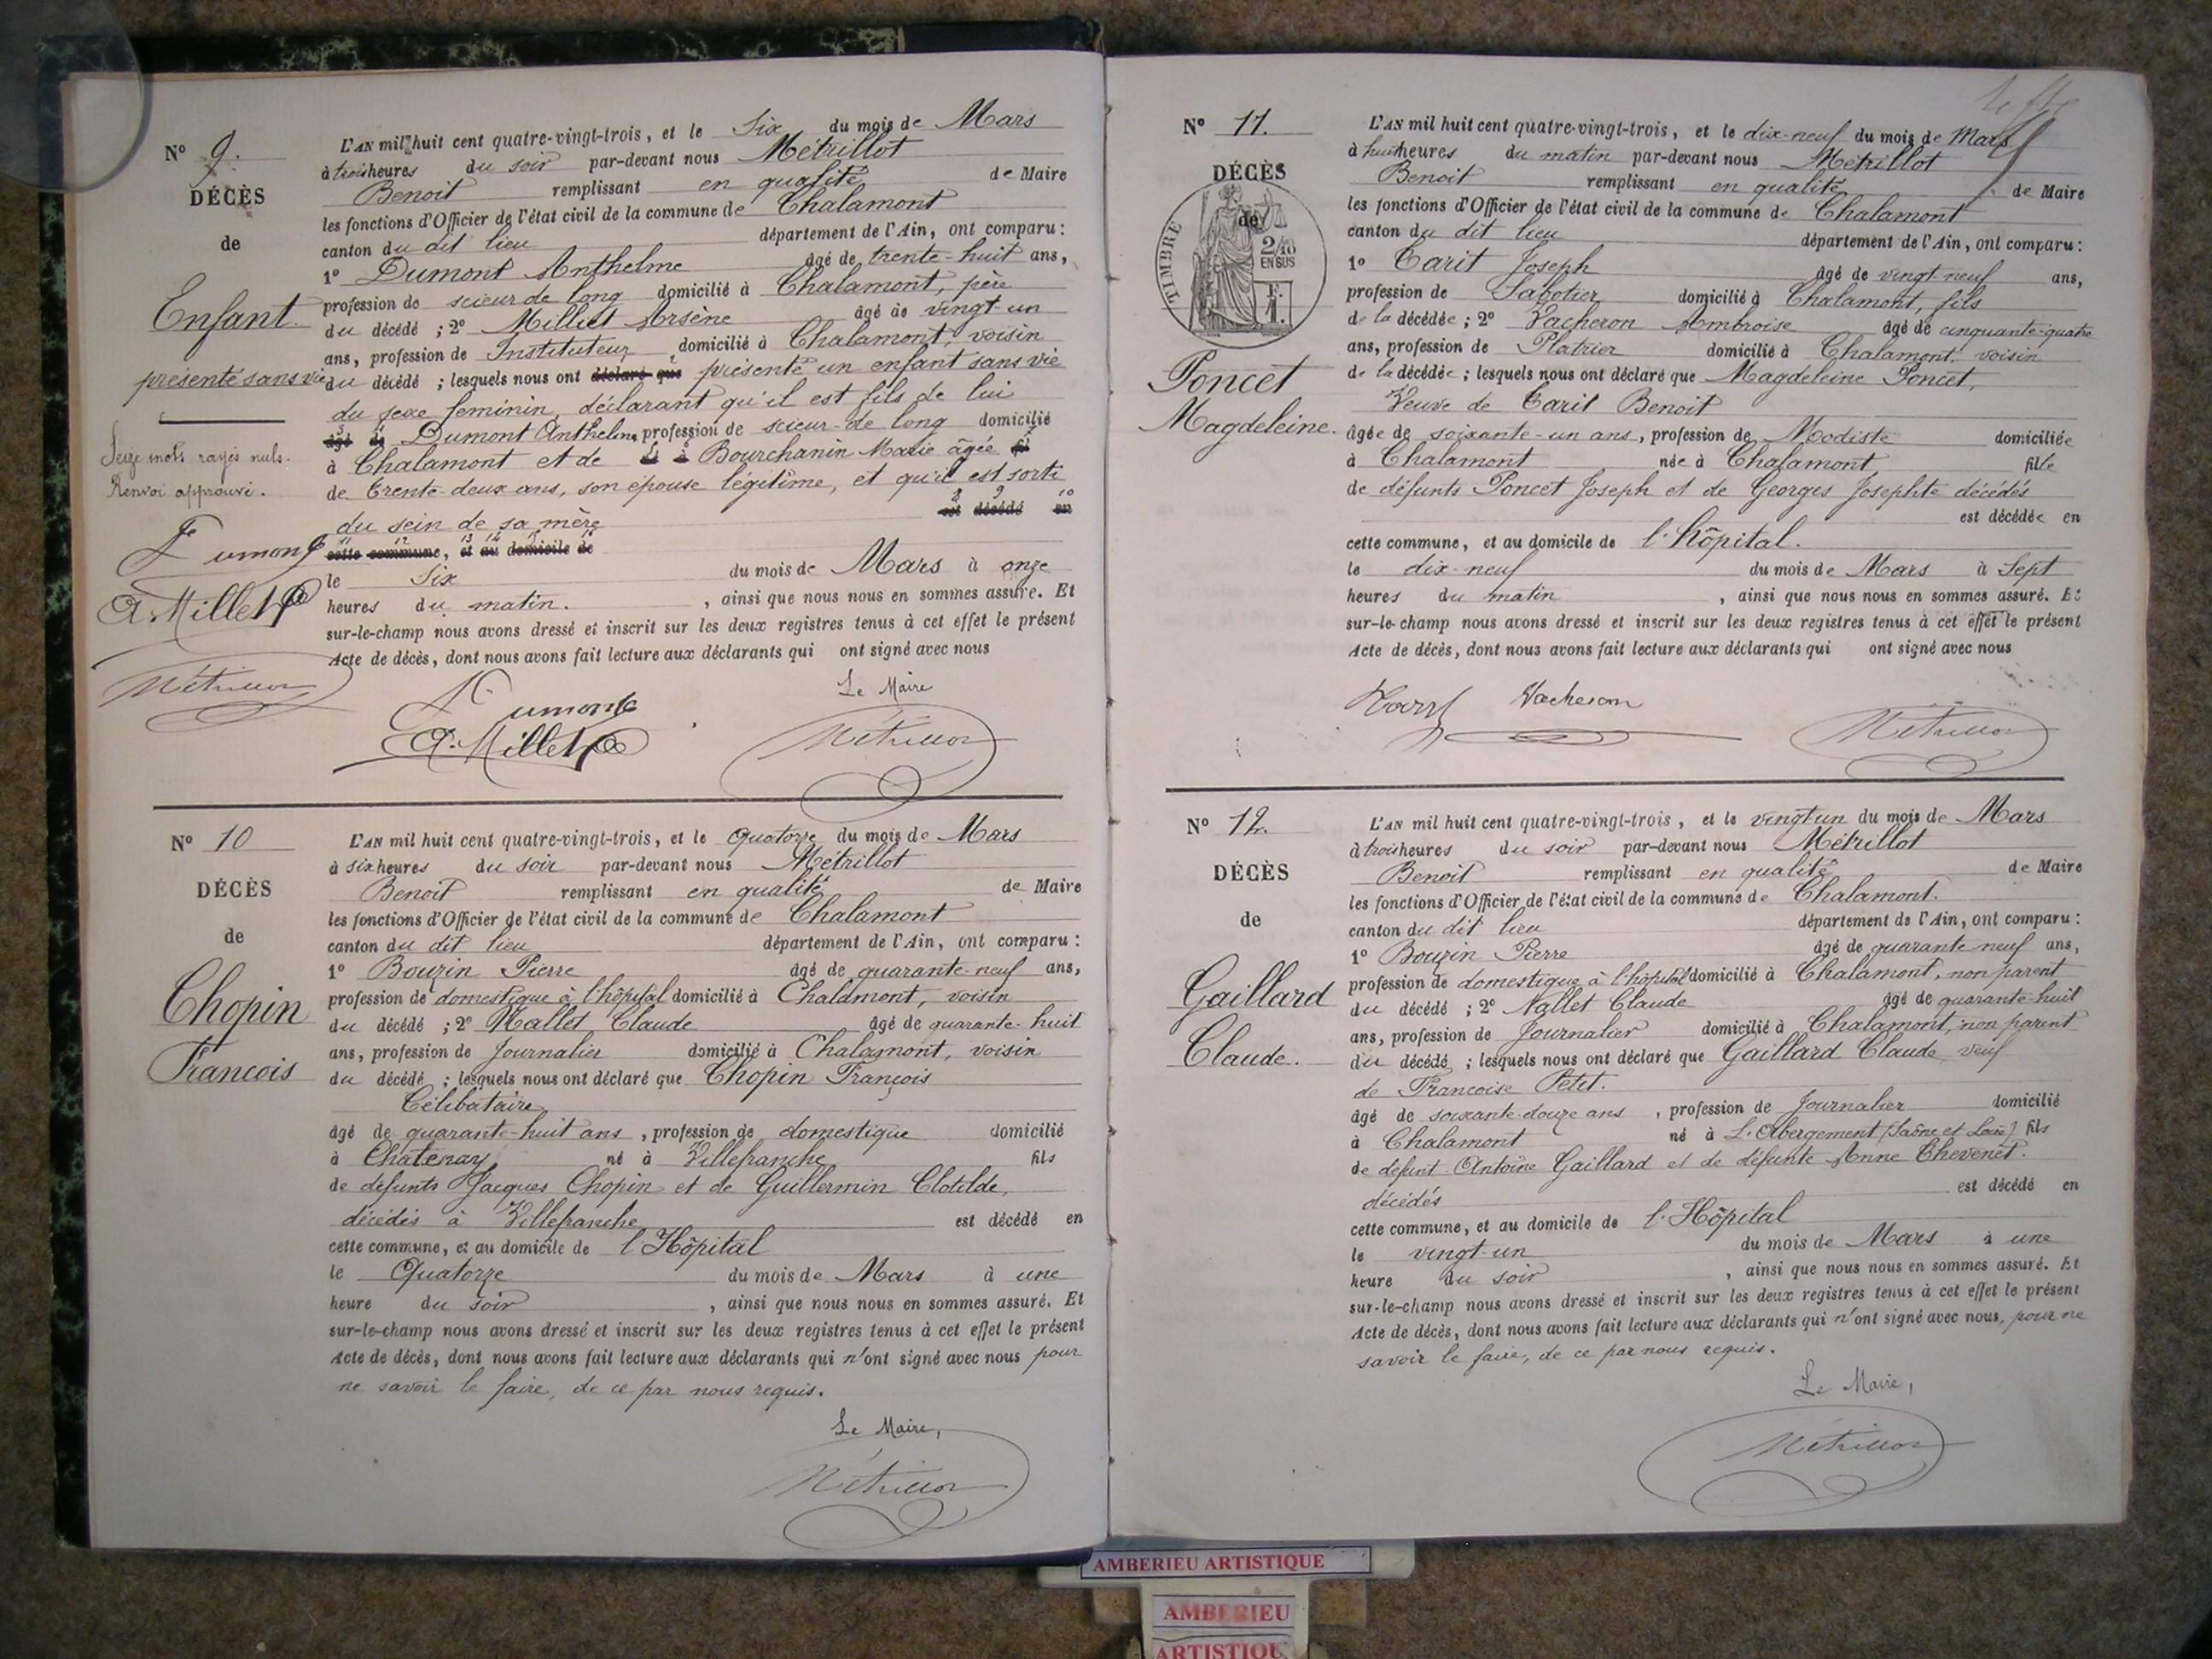 N° 9.
DÉCÈS
de
Enfant
présenté sans vie
Seize mots rayés nuls.
Renvoi approuvé.
Dumont
A. Millet
Métrillot
L'AN mil huit cent quatre-vingt-trois, et le Six du mois de Mars
à trois heures du soir par-devant nous Métrillot
Benoit remplissant en qualité de Maire
les fonctions d'Officier de l'état civil de la commune de Chalamont
canton du dit lieu département de l'Ain, ont comparu :
1° Dumont Anthelme âgé de trente-huit ans,
profession de scieur de long domicilié à Chalamont, père
du décédé ; 2° Milliet Arsène âgé de vingt-un
ans, profession de Instituteur domicilié à Chalamont, voisin
du décédé ; lesquels nous ont déclaré que présenté un enfant sans vie
du sexe féminin, déclarant qu'il est fils de lui
âgé de Dumont Anthelme profession de scieur-de long domicilié
à Chalamont et de né à Bourchanin Marie âgée fi
de trente-deux ans, son épouse légitime, et qu'il est sorti
8 9 10
du sein de sa mère est décédé en
11 12 13 14 15 16
cette commune, et au domicile de
le Six du mois de Mars à onze
heures du matin. , ainsi que nous nous en sommes assuré. Et
sur-le-champ nous avons dressé et inscrit sur les deux registres tenus à cet effet le présent
Acte de décès, dont nous avons fait lecture aux déclarants qui ont signé avec nous
Le Maire
Dumont
A. Millet
Métrillot
N° 10
DÉCÈS
de
Chopin
Francois
L'AN mil huit cent quatre-vingt-trois, et le Quatorze du mois de Mars
à six heures du soir par-devant nous Métrillot
Benoit remplissant en qualité de Maire
les fonctions d'Officier de l'état civil de la commune de Chalamont
canton du dit lieu département de l'Ain, ont comparu :
1° Bouzin Pierre âgé de quarante-neuf ans,
profession de domestique à l'hôpital domicilié à Chalamont, voisin
du décédé ; 2° Nallet Claude âgé de quarante-huit
ans, profession de Journalier domicilié à Chalamont, voisin
du décédé ; lesquels nous ont déclaré que Chopin François
Célibataire
âgé de quarante-huit ans, profession de domestique domicilié
à Chatenay né à Villefranche fils
de défunts Jacques Chopin et de Guillermin Clotilde,
décédés à Villefranche est décédé en
cette commune, et au domicile de l'Hôpital
le Quatorze du mois de Mars à une
heure du soir , ainsi que nous nous en sommes assuré. Et
sur-le-champ nous avons dressé et inscrit sur les deux registres tenus à cet effet le présent
Acte de décès, dont nous avons fait lecture aux déclarants qui n'ont signé avec nous pour
ne savoir le faire, de ce par nous requis.
Le Maire,
Métrillot
N° 11.
DÉCÈS
de
TIMBRE
2/10
EN SUS
Poncet
Magdeleine.
L'AN mil huit cent quatre-vingt-trois, et le dix-neuf du mois de Mars
à huit heures du matin par-devant nous Métrillot
Benoit remplissant en qualité de Maire
les fonctions d'Officier de l'état civil de la commune de Chalamont
canton du dit lieu département de l'Ain, ont comparu :
1° Carit Joseph âgé de vingt-neuf ans,
profession de Sabotier domicilié à Chalamont, fils
de la décédée ; 2° Vacheron Ambroise âgé de cinquante-quatre
ans, profession de Platrier domicilié à Chalamont, voisin
de la décédée ; lesquels nous ont déclaré que Magdeleine Poncet,
Veuve de Carit Benoit
âgée de soixante-un ans, profession de Modiste domiciliée
à Chalamont née à Chalamont fille
de défunts Poncet Joseph et de Georges Josephte décédés
est décédée en
cette commune, et au domicile de l'hôpital.
le dix-neuf du mois de Mars à Sept
heures du matin , ainsi que nous nous en sommes assuré. Et
sur-le-champ nous avons dressé et inscrit sur les deux registres tenus à cet effet le présent
Acte de décès, dont nous avons fait lecture aux déclarants qui ont signé avec nous
Vacheron
Métrillot
N° 12.
DÉCÈS
de
Gaillard
Claude.
L'AN mil huit cent quatre-vingt-trois, et le vingt un du mois de Mars
à trois heures du soir par-devant nous Métrillot
Benoit remplissant en qualité de Maire
les fonctions d'Officier de l'état civil de la commune de Chalamont.
canton du dit lieu département de l'Ain, ont comparu :
1° Bouzin Pierre âgé de quarante-neuf ans,
profession de domestique à l'hôpital domicilié à Chalamont, non parent
du décédé ; 2° Nallet Claude âgé de quarante-huit
ans, profession de Journalier domicilié à Chalamont, non parent
du décédé ; lesquels nous ont déclaré que Gaillard Claude, veuf
de Francoise Petit.
âgé de soixante-douze ans , profession de Journalier domicilié
à Chalamont né à L'Abergement (Saône et Loire) fils
de défunt Antoine Gaillard et de défunte Anne Chevenet.
décédés est décédé en
cette commune, et au domicile de l'Hôpital
le vingt-un du mois de Mars à une
heure du soir , ainsi que nous nous en sommes assuré. Et
sur-le-champ nous avons dressé et inscrit sur les deux registres tenus à cet effet le présent
Acte de décès, dont nous avons fait lecture aux déclarants qui n'ont signé avec nous, pour ne
savoir le faire, de ce par nous requis.
Le Maire,
Métrillot
AMBERIEU ARTISTIQUE
AMBERIEU
ARTISTIQUE